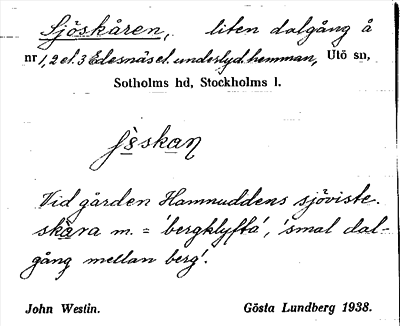 Sjöskåren, liten dalgång å
nr 1, 2 el. 3 Edesnäs el. underlyd. hemman, Utö sn,
Sotholms hd, Stockholms l.
Vid gården Hamnuddens sjöviste.
skåra m. = 'bergklyfta', 'smal dal-
gång mellan berg'.
John Westin. Gösta Lundberg 1938.